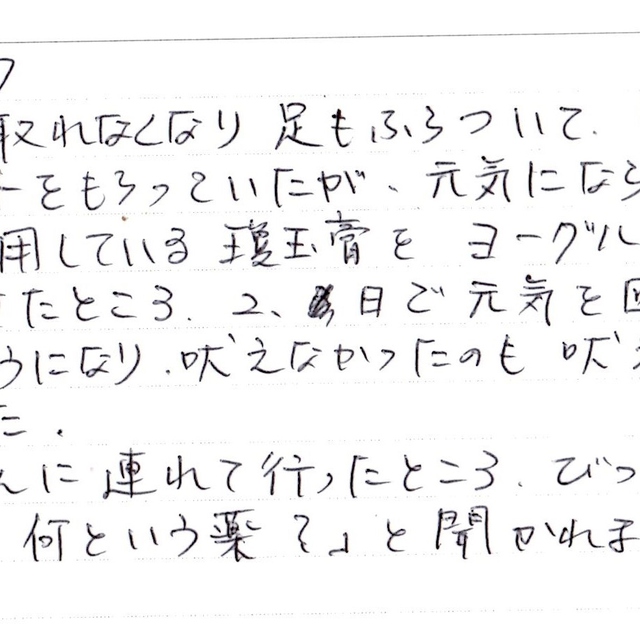 取れなくなり 足もふらついて.
ーをもらっていたが、元気になら
用している 瓊玉膏を ヨーグル
たところ. 2、3日で元気を回
うになり.吠えなかったのも 吠え
た.
んに連れて行ったところ.びっ
何という薬?」と聞かれま